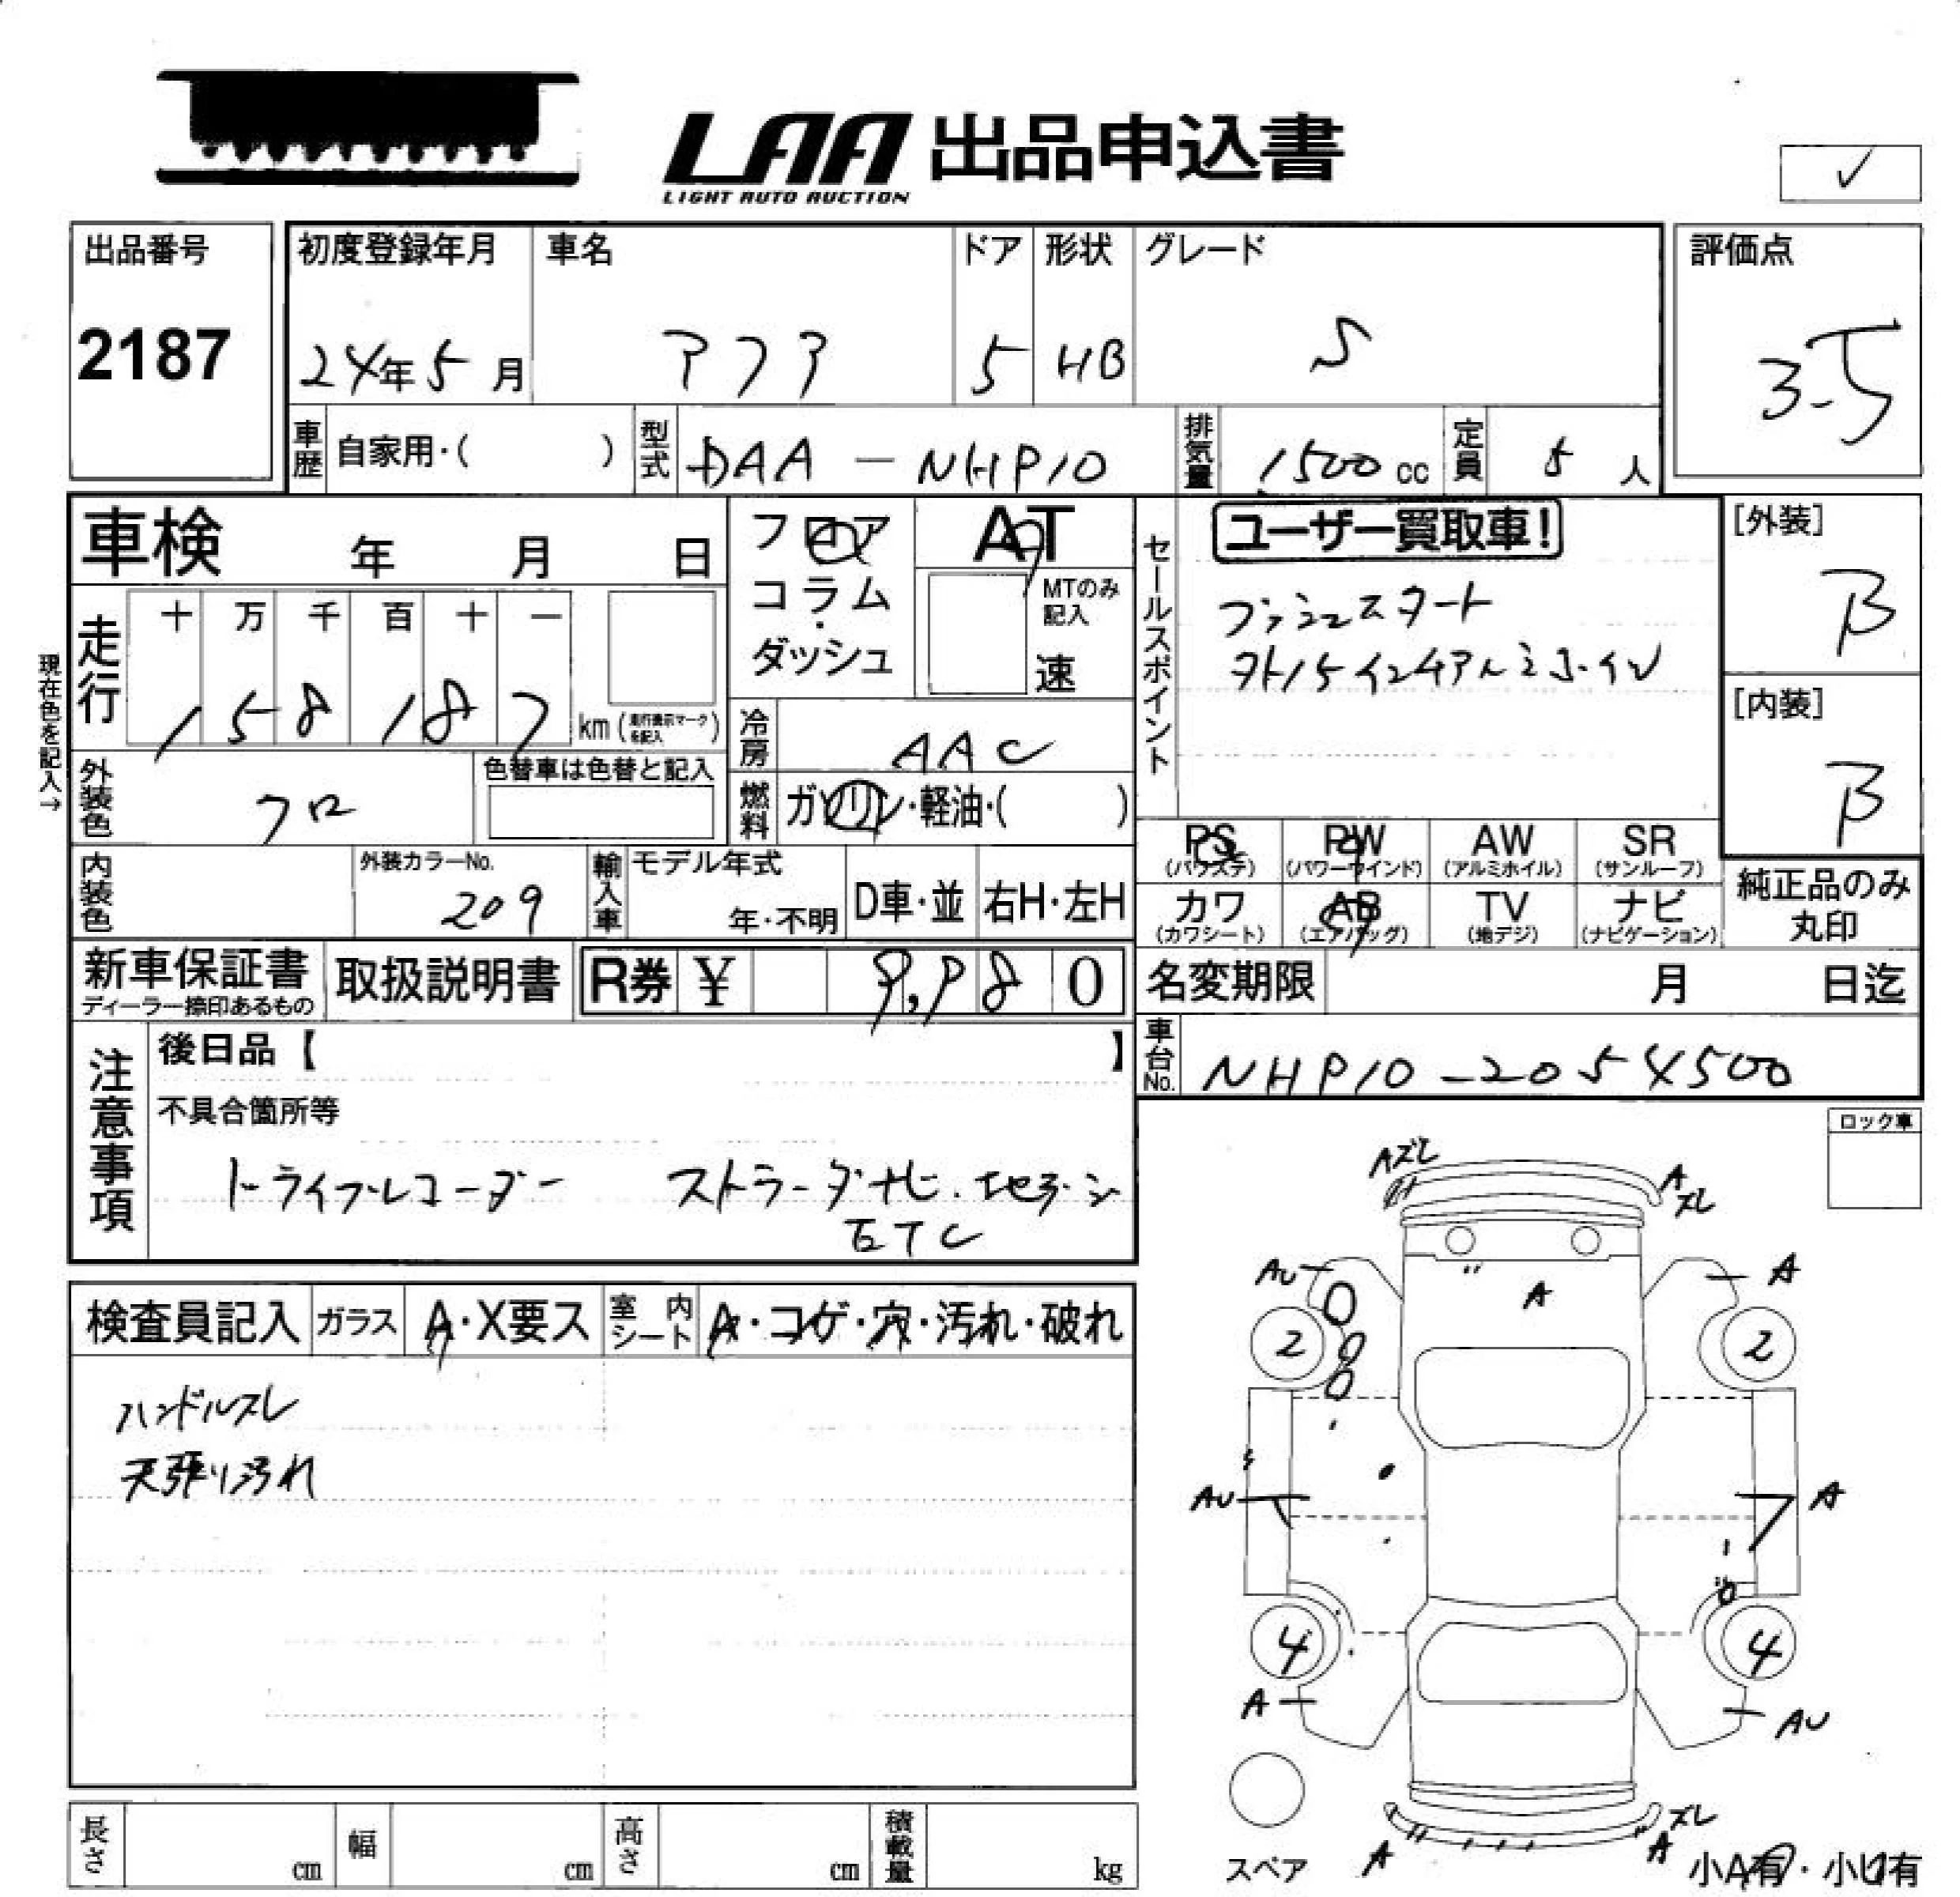 LAA 出品申込書
LIGHT AUTO AUCTION
✓
出品番号
2187
初度登録年月
24年5月
車名
アクア
ドア
5
形状
HB
グレード
S
評価点
3.5
車歴
自家用・( )
型式
DAA-NHP10
排気量
1500cc
定員
5人
車検 年 月 日
フロア
コラム
・
ダッシュ
AT
MTのみ
記入
速
セールスポイント
ユーザー買取車!
プッシュスタート
[外装]
B
[内装]
B
現在色を記入→
走行
十 万 千 百 十 一
158187
km (走行表示マークを記入)
冷房
AAC
燃料
ガソリン・軽油・( )
外装色
クロ
色替車は色替と記入
内装色
外装カラーNo.
209
輸入車
モデル年式
年・不明
D車・並
右H・左H
PS
(パワステ)
PW
(パワーウインド)
AW
(アルミホイル)
SR
(サンルーフ)
カワ
(カワシート)
AB
(エアバッグ)
TV
(地デジ)
ナビ
(ナビゲーション)
純正品のみ
丸印
新車保証書
ディーラー捺印あるもの
取扱説明書
R券 ¥ 9,980
名変期限 月 日迄
車台No.
NHP10-2054500
注意事項
後日品【 】
不具合箇所等
ドライブレコーダー ストラーダナビ.地デジ
ETC
ロック車
検査員記入
ガラス
A・X要ス
室内
シート
A・コゲ・穴・汚れ・破れ
ハンドルスレ
天張り汚れ
Aスレ
A
スレ
AU
A
A
2
2
AU
A
4
4
A
AU
スペア
A
スレ
A
小A有・小U有
長さ cm
幅 cm
高さ cm
積載量 kg